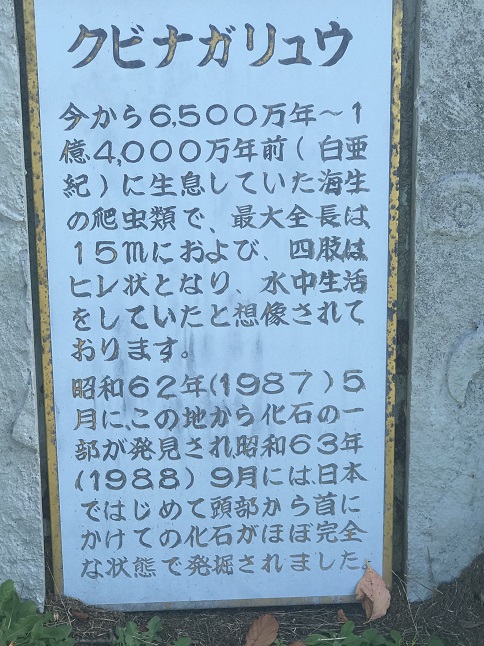 クビナガリュウ
今から６,５００万年～１
億４,０００万年前(白亜
紀)に生息していた海生
の爬虫類で、最大全長は
１５ｍにおよび、四肢は
ヒレ状となり、水中生活
をしていたと想像されて
おります。
昭和６２年(１９８７)５
月に、この地から化石の一
部が発見され、昭和６３年
(１９８８)９月には、日本
ではじめて頭部から首に
かけての化石がほぼ完全
な状態で発掘されました。